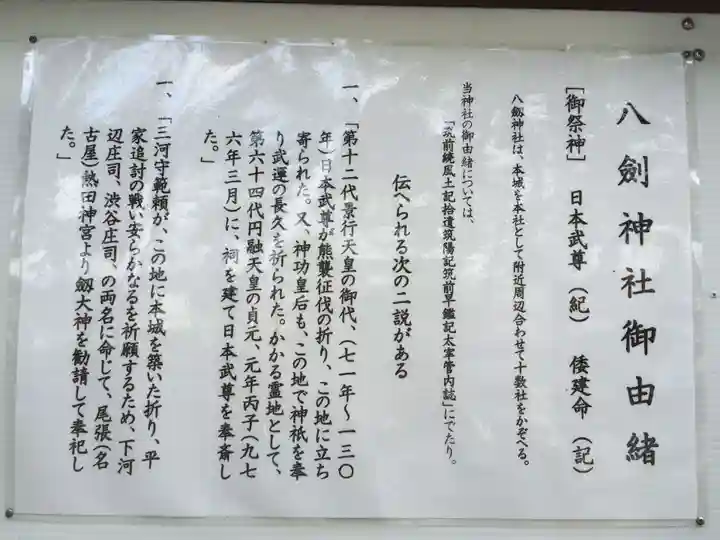 八劍神社御由緒
[御祭神]　日本武尊（紀）　倭建命（記）
八劔神社は、本城を本社として附近周辺合わせて十数社をかぞへる。
当神社の御由緒については、
「筑前続風土記拾遺筑陽記筑前早鑑記太宰管内誌」にでたり。
伝へられる次の二説がある
一、「第十二代景行天皇の御代、（七一年～一三〇
年）日本武尊が熊襲征伐の折り、この地に立ち
寄られた。又、神功皇后も、この地で神祇を奉
り武運の長久を祈られた。かかる霊地として、
第六十四代円融天皇の貞元、元年丙子（九七
六年三月）に、祠を建て日本武尊を奉斎し
た。」
一、「三河守範頼が、この地に本城を築いた折り、平
家追討の戦い安らかなるを祈願するため、下河
辺庄司、渋谷庄司、の両名に命じて、尾張（名
古屋）熱田神宮より劔大神を勧請して奉祀し
た。」